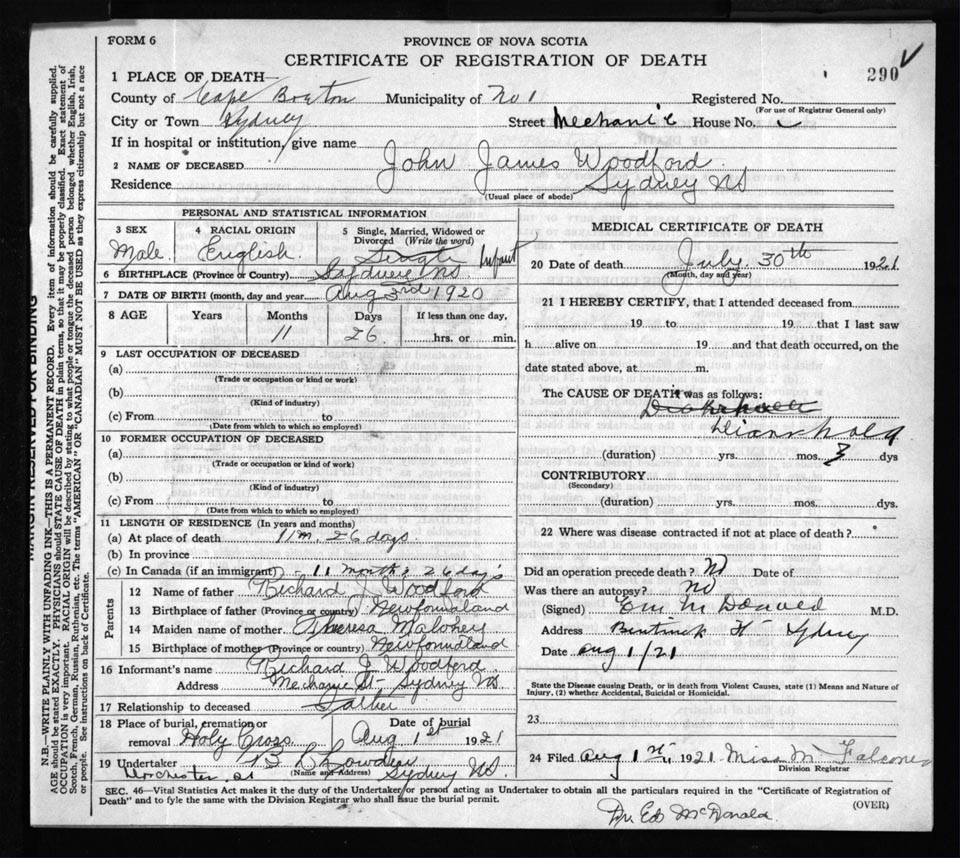 FORM 6
PROVINCE OF NOVA SCOTIA
CERTIFICATE OF REGISTRATION OF DEATH
290
1 PLACE OF DEATH—
County of Cape Breton Municipality of No 1 Registered No.
(For use of Registrar General only)
City or Town Sydney Street Mechanic House No.
If in hospital or institution, give name
2 NAME OF DECEASED John James Woodford
Residence Sydney NS
(Usual place of abode)
PERSONAL AND STATISTICAL INFORMATION
3 SEX Male
4 RACIAL ORIGIN English
5 Single, Married, Widowed or Divorced (Write the word) Single Infant
6 BIRTHPLACE (Province or Country) Sydney NS
7 DATE OF BIRTH (month, day and year) Aug 3rd 1920
8 AGE Years Months Days If less than one day,
11 26 hrs. or min.
9 LAST OCCUPATION OF DECEASED
(a)
(Trade or occupation or kind or work)
(b)
(Kind of industry)
(c) From to
(Date from which to which so employed)
10 FORMER OCCUPATION OF DECEASED
(a)
(Trade or occupation or kind of work)
(b)
(Kind of industry)
(c) From to
(Date from which to which so employed)
11 LENGTH OF RESIDENCE (In years and months)
(a) At place of death 11 m. 26 days
(b) In province
(c) In Canada (if an immigrant) 11 months 26 day's
Parents
12 Name of father Richard J. Woodford
13 Birthplace of father (Province or country) Newfoundland
14 Maiden name of mother Theresa Maloney
15 Birthplace of mother (Province or country) Newfoundland
16 Informant's name Richard J. Woodford
Address Mechanic St - Sydney NS
17 Relationship to deceased Father
18 Place of burial, cremation or removal Holy Cross
Date of burial Aug 1st 1921
19 Undertaker
(Name and Address) Sydney NS
Dorchester St
MEDICAL CERTIFICATE OF DEATH
20 Date of death July 30th 1921
(Month, day and year)
21 I HEREBY CERTIFY, that I attended deceased from
19 to 19 that I last saw
h alive on 19 and that death occurred, on the
date stated above, at m.
The CAUSE OF DEATH was as follows:
(duration) yrs. mos. 3 dys
CONTRIBUTORY
(Secondary)
(duration) yrs. mos. dys.
22 Where was disease contracted if not at place of death?
Did an operation precede death? No Date of
Was there an autopsy? No
(Signed) McDonald M.D.
Address Sydney
Date Aug 1/21
*State the Disease causing Death, or in death from Violent Causes, state (1) Means and Nature of Injury, (2) whether Accidental, Suicidal or Homicidal.
23
24 Filed Aug 1st 1921 Miss M Falconer
Division Registrar
SEC. 46—Vital Statistics Act makes it the duty of the Undertaker or person acting as Undertaker to obtain all the particulars required in the "Certificate of Registration of
Death" and to fyle the same with the Division Registrar who shall issue the burial permit.
(OVER)
Dr. Ed McDonald.
MARGIN RESERVED FOR BINDING
N.B.—WRITE PLAINLY WITH UNFADING INK—THIS IS A PERMANENT RECORD. Every item of information should be carefully supplied.
AGE should be stated EXACTLY. PHYSICIANS should STATE CAUSE OF DEATH in plain terms, so that it may be properly classified. Exact statement of
OCCUPATION is very important. RACIAL ORIGIN will be described by stating to what people or tongue the deceased person belonged whether English, Irish,
Scotch, French, German, Russian, Ruthenian, etc. The terms "AMERICAN" OR "CANADIAN" MUST NOT BE USED as they express citizenship but not a race
or people. See instructions on back of Certificate.